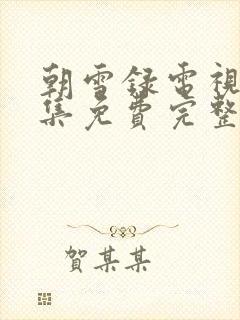 朝雪録電視
集免費完整
賀某某